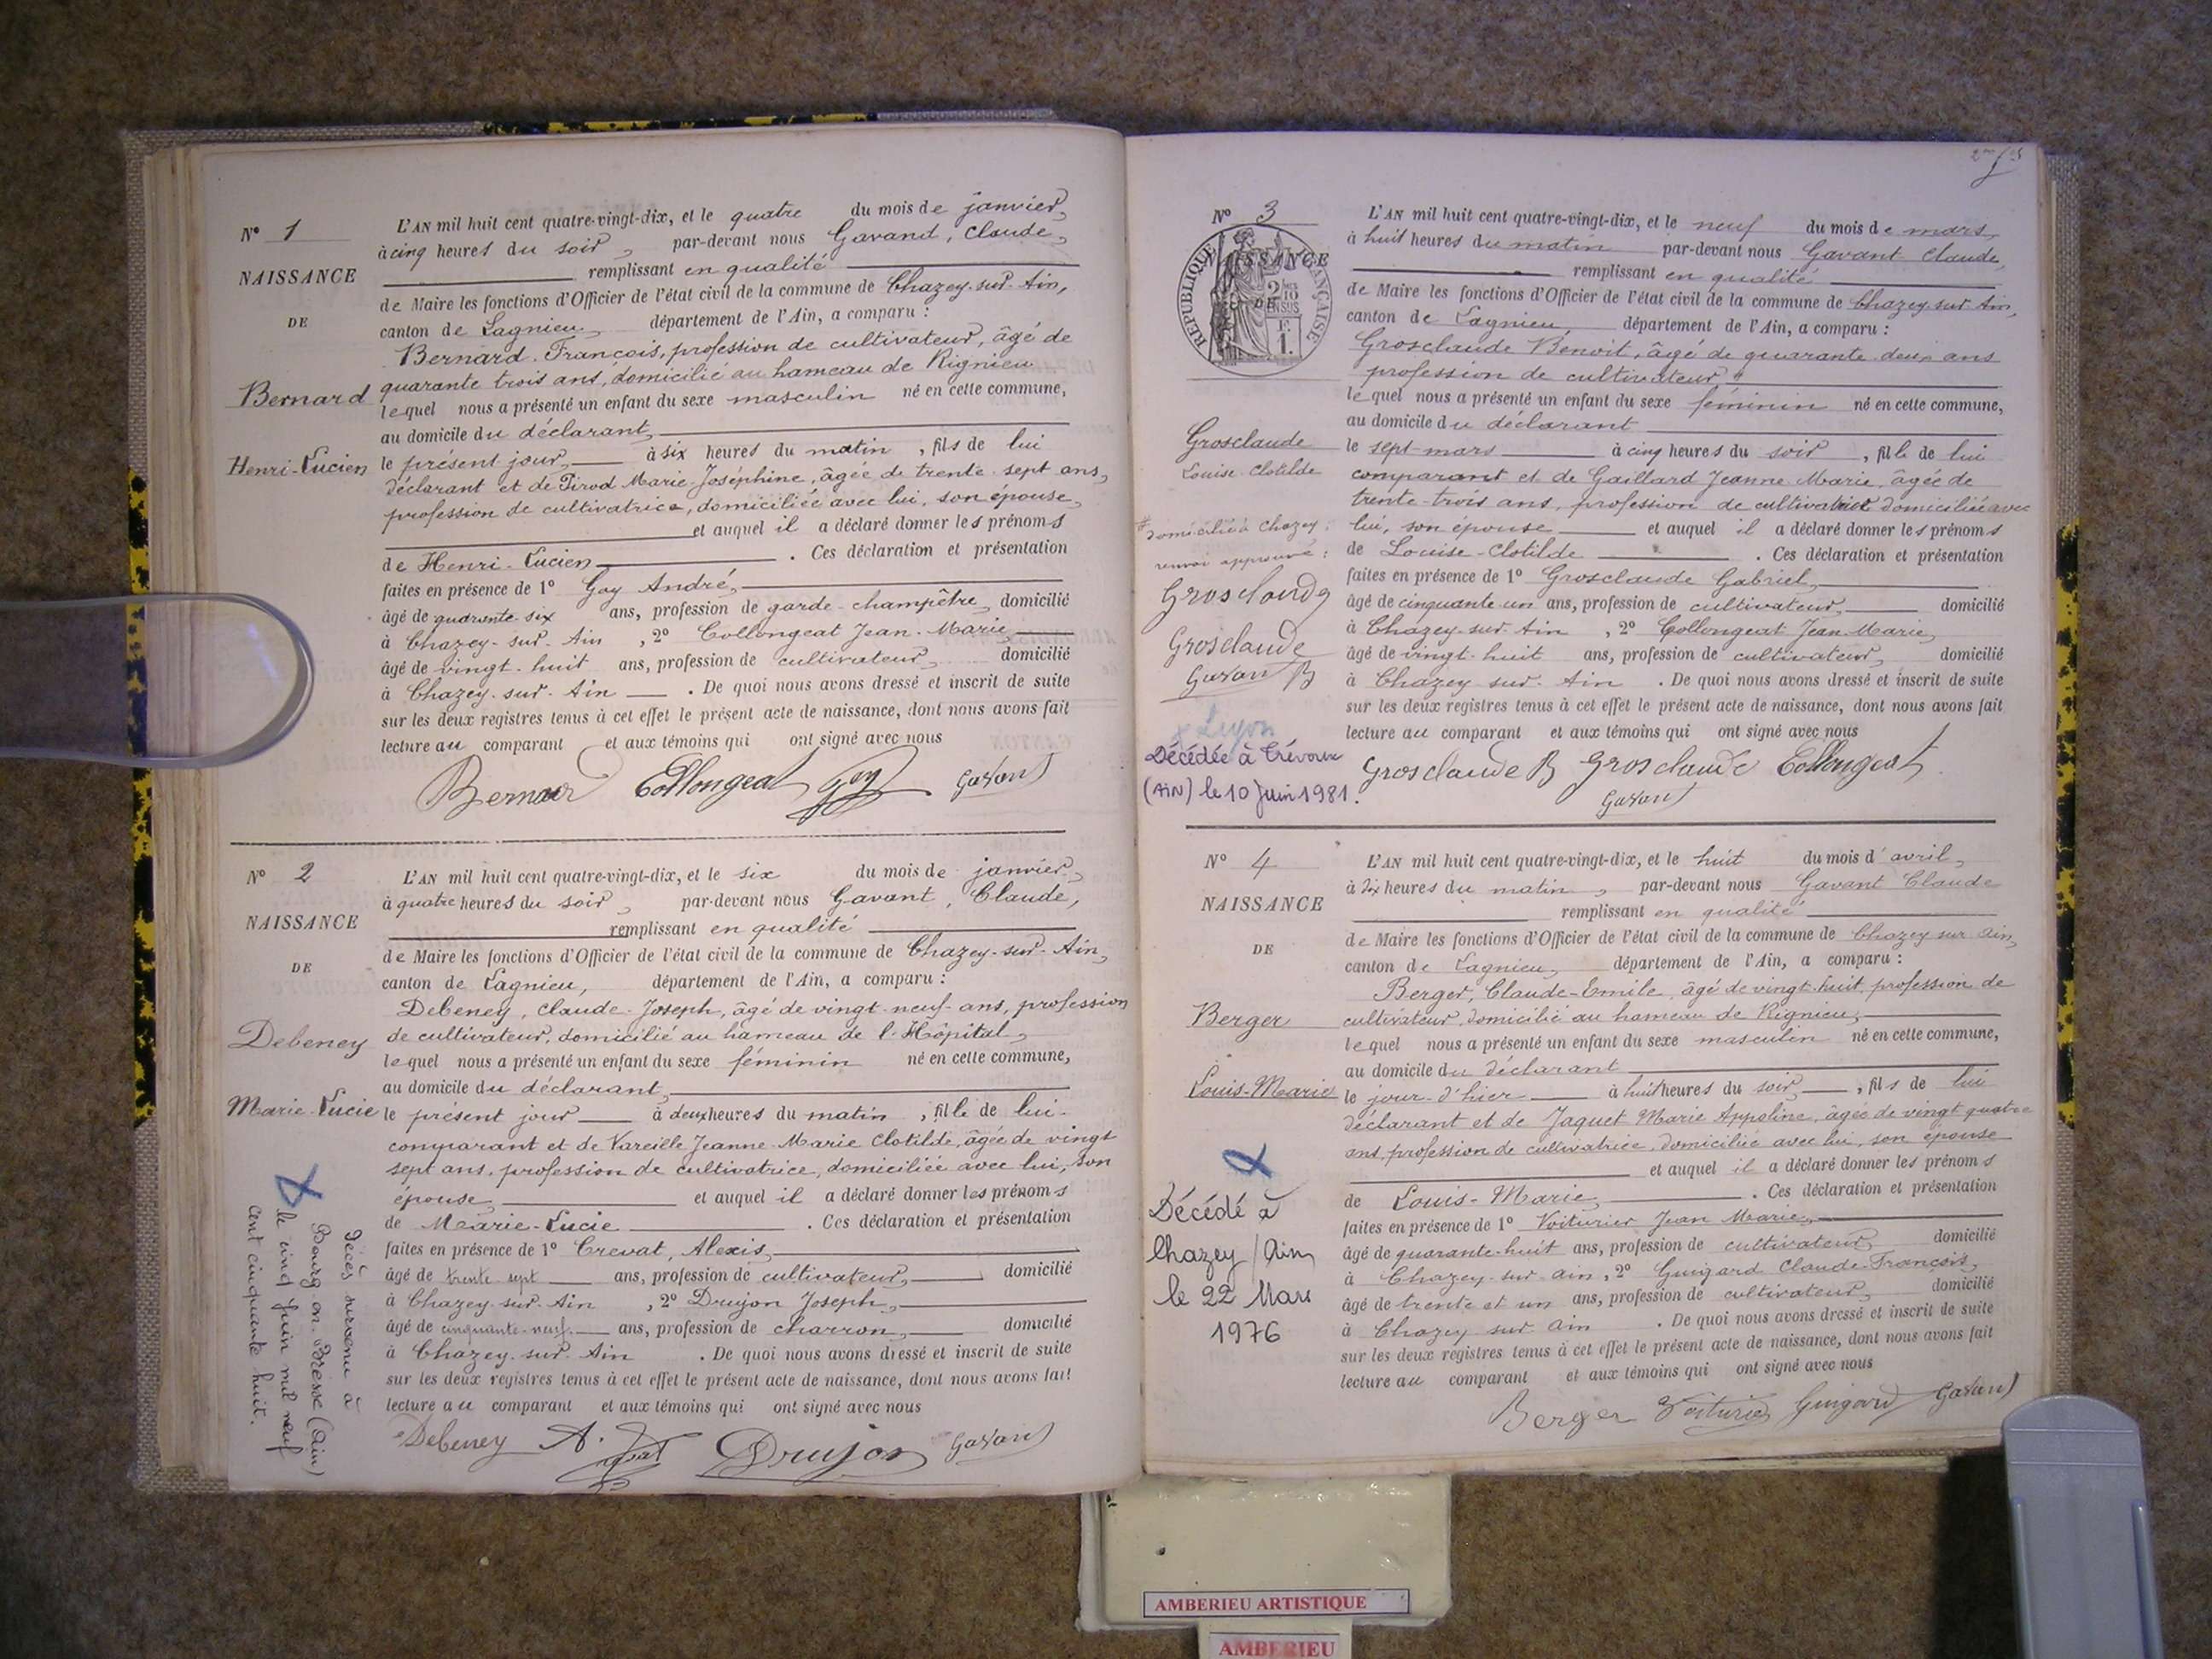 N° 1
NAISSANCE
DE
Bernard
Henri-Lucien
L'AN mil huit cent quatre-vingt-dix, et le quatre du mois de janvier,
à cinq heures du soir, par-devant nous Gavand, Claude,
remplissant en qualité
de Maire les fonctions d'Officier de l'état civil de la commune de Chazey-sur-Ain,
canton de Lagnieu, département de l'Ain, a comparu :
Bernard François, profession de cultivateur, âgé de
quarante trois ans, domicilié au hameau de Rignieu
lequel nous a présenté un enfant du sexe masculin né en cette commune,
au domicile du déclarant,
le présent jour, à six heures du matin, fils de lui
déclarant et de Pirod Marie-Joséphine, âgée de trente-sept ans,
profession de cultivatrice, domiciliée avec lui, son épouse,
et auquel il a déclaré donner les prénoms
de Henri-Lucien. Ces déclaration et présentation
faites en présence de 1° Goy André,
âgé de quarante six ans, profession de garde-champêtre, domicilié
à Chazey-sur-Ain, 2° Collongeat Jean-Marie,
âgé de vingt-huit ans, profession de cultivateur, domicilié
à Chazey-sur-Ain. De quoi nous avons dressé et inscrit de suite
sur les deux registres tenus à cet effet le présent acte de naissance, dont nous avons fait
lecture au comparant et aux témoins qui ont signé avec nous
Bernard Collongeat Goy Gavant
N° 2
NAISSANCE
DE
Debeney
Marie-Lucie
L'AN mil huit cent quatre-vingt-dix, et le six du mois de janvier,
à quatre heures du soir, par-devant nous Gavant, Claude,
remplissant en qualité
de Maire les fonctions d'Officier de l'état civil de la commune de Chazey-sur-Ain,
canton de Lagnieu, département de l'Ain, a comparu :
Debeney, Claude-Joseph, âgé de vingt-neuf ans, profession
de cultivateur, domicilié au hameau de l'Hôpital,
lequel nous a présenté un enfant du sexe féminin né en cette commune,
au domicile du déclarant,
le présent jour à deux heures du matin, fille de lui-
comparant et de Vareille Jeanne-Marie Clotilde, âgée de vingt
sept ans, profession de cultivatrice, domiciliée avec lui, son
épouse et auquel il a déclaré donner les prénoms
de Marie-Lucie. Ces déclaration et présentation
faites en présence de 1° Crevat, Alexis,
âgé de trente-sept ans, profession de cultivateur, domicilié
à Chazey-sur-Ain, 2° Drujon Joseph,
âgé de cinquante-neuf ans, profession de charron, domicilié
à Chazey-sur-Ain. De quoi nous avons dressé et inscrit de suite
sur les deux registres tenus à cet effet le présent acte de naissance, dont nous avons fait
lecture au comparant et aux témoins qui ont signé avec nous
Debeney Drujon Gavant
Décès survenu à
Bourg en Bresse (Ain)
le cinq juin mil neuf
cent cinquante huit.
N° 3
NAISSANCE
DE
RÉPUBLIQUE FRANÇAISE
2/10 EN SUS
1 F.
Grosclaude
Louise-Clotilde
L'AN mil huit cent quatre-vingt-dix, et le neuf du mois de mars,
à huit heures du matin par-devant nous Gavant Claude,
remplissant en qualité
de Maire les fonctions d'Officier de l'état civil de la commune de Chazey-sur-Ain,
canton de Lagnieu, département de l'Ain, a comparu :
Grosclaude Benoit, âgé de quarante deux ans
profession de cultivateur #
lequel nous a présenté un enfant du sexe féminin né en cette commune,
au domicile du déclarant
le sept mars à cinq heures du soir, fille de lui
comparant et de Gaillard Jeanne Marie, âgée de
trente-trois ans, profession de cultivatrice domiciliée avec
lui, son épouse et auquel il a déclaré donner les prénoms
de Louise-Clotilde. Ces déclaration et présentation
faites en présence de 1° Grosclaude Gabriel,
âgé de cinquante un ans, profession de cultivateur, domicilié
à Chazey-sur-Ain, 2° Collongeat Jean-Marie,
âgé de vingt-huit ans, profession de cultivateur, domicilié
à Chazey-sur-Ain. De quoi nous avons dressé et inscrit de suite
sur les deux registres tenus à cet effet le présent acte de naissance, dont nous avons fait
lecture au comparant et aux témoins qui ont signé avec nous
Grosclaude B Grosclaude Collongeat
Gavant
# domicilié à Chazey :
renvoi approuvé :
Grosclaude
Grosclaude
Gavant B
Lyon
Décédée à Trévoux
(AIN) le 10 Juin 1981.
N° 4
NAISSANCE
DE
Berger
Louis-Marie
L'AN mil huit cent quatre-vingt-dix, et le huit du mois d'avril,
à dix heures du matin, par-devant nous Gavant Claude
remplissant en qualité
de Maire les fonctions d'Officier de l'état civil de la commune de Chazey-sur-Ain,
canton de Lagnieu, département de l'Ain, a comparu :
Berger, Claude-Emile, âgé de vingt-huit, profession de
cultivateur, domicilié au hameau de Rignieu,
lequel nous a présenté un enfant du sexe masculin né en cette commune,
au domicile du déclarant
le jour d'hier à huit heures du soir, fils de lui
déclarant et de Jaquet Marie Appoline, âgée de vingt quatre
ans, profession de cultivatrice, domiciliée avec lui, son épouse
et auquel il a déclaré donner les prénoms
de Louis-Marie. Ces déclaration et présentation
faites en présence de 1° Voiturier Jean Marie,
âgé de quarante-huit ans, profession de cultivateur, domicilié
à Chazey-sur-Ain, 2° Guigard Claude-François,
âgé de trente et un ans, profession de cultivateur, domicilié
à Chazey sur Ain. De quoi nous avons dressé et inscrit de suite
sur les deux registres tenus à cet effet le présent acte de naissance, dont nous avons fait
lecture au comparant et aux témoins qui ont signé avec nous
Berger Voiturier Guigard Gavant
Décédé à
Chazey/Ain
le 22 Mars
1976
AMBERIEU ARTISTIQUE
AMBERIEU